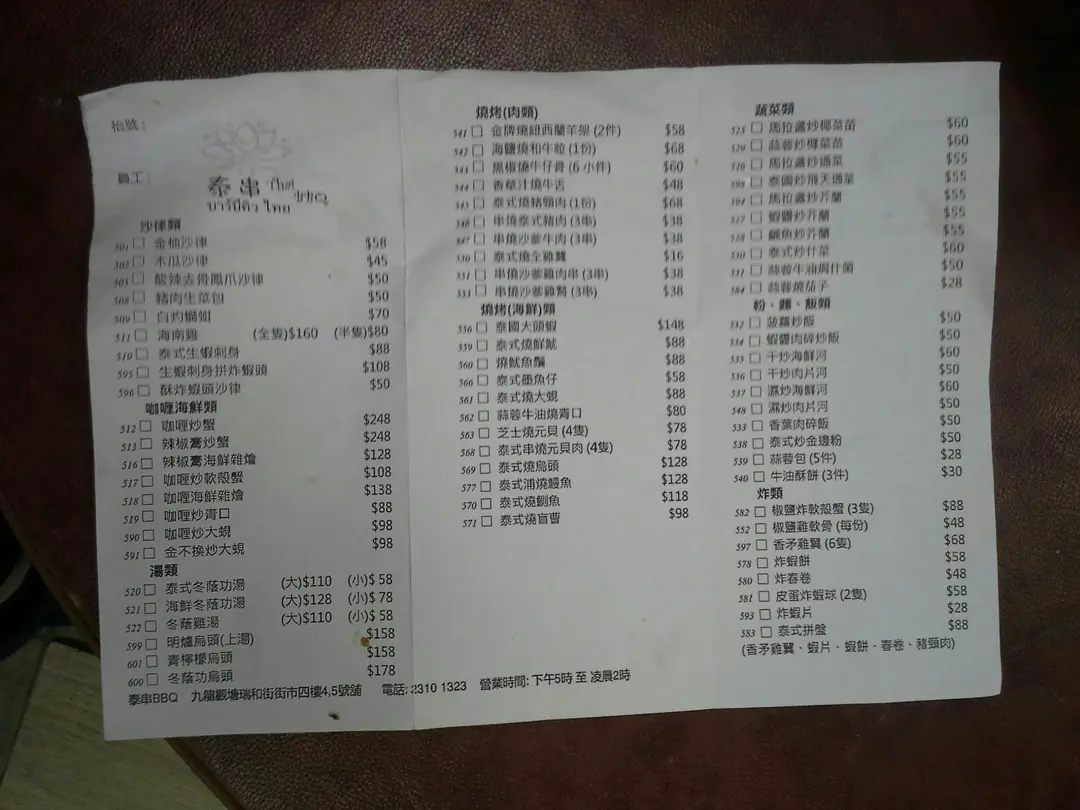 枱號:
員工:
泰串 Thai BBQ
บาร์บีคิว ไทย
沙律類
501 金柚沙律 $58
502 木瓜沙律 $45
505 酸辣去骨鳳爪沙律 $50
508 豬肉生菜包 $50
509 白灼螄蚶 $70
511 海南雞 (全隻)$160 (半隻)$80
510 泰式生蝦刺身 $88
595 生蝦刺身拼炸蝦頭 $108
596 酥炸蝦頭沙律 $50
咖喱海鮮類
512 咖喱炒蟹 $248
513 辣椒膏炒蟹 $248
516 辣椒膏海鮮雜燴 $128
517 咖喱炒軟殼蟹 $108
518 咖喱海鮮雜燴 $138
519 咖喱炒青口 $88
590 咖喱炒大蜆 $98
591 金不換炒大蜆 $98
湯類
520 泰式冬蔭功湯 (大)$110 (小)$ 58
521 海鮮冬蔭功湯 (大)$128 (小)$ 78
522 冬蔭雞湯 (大)$110 (小)$ 58
599 明爐烏頭(上湯) $158
601 青檸檬烏頭 $158
600 冬蔭功烏頭 $178
燒烤(肉類)
541 金牌燒紐西蘭羊架 (2件) $58
542 海鹽燒和牛粒 (1份) $68
543 黑椒燒牛仔骨 (6 小件) $60
544 香草汁燒牛舌 $48
545 泰式燒豬頸肉 (1份) $68
546 串燒泰式豬肉 (3串) $38
547 串燒沙爹牛肉 (3串) $38
550 泰式燒全雞翼 $16
551 串燒沙爹雞肉串 (3串) $38
553 串燒沙爹雞腎 (3串) $38
燒烤(海鮮)類
556 泰國大頭蝦 $148
559 泰式燒鮮魷 $88
560 燒魷魚鬚 $88
566 泰式墨魚仔 $58
561 泰式燒大蜆 $88
562 蒜蓉牛油燒青口 $80
563 芝士燒元貝 (4隻) $78
568 泰式串燒元貝肉 (4隻) $78
569 泰式燒烏頭 $128
577 泰式浦燒鰻魚 $128
570 泰式燒鯽魚 $118
571 泰式燒盲曹 $98
蔬菜類
523 馬拉盞炒椰菜苗 $60
529 蒜蓉炒椰菜苗 $60
526 馬拉盞炒通菜 $55
598 泰國炒飛天通菜 $55
594 馬拉盞炒芥蘭 $55
527 蝦醬炒芥蘭 $55
528 鹹魚炒芥蘭 $55
530 泰式炒什菜 $60
531 蒜蓉牛油焗什菌 $50
584 蒜蓉燒茄子 $28
粉、麵、飯類
532 菠蘿炒飯 $50
534 蝦醬肉碎炒飯 $50
535 干炒海鮮河 $60
536 干炒肉片河 $50
537 濕炒海鮮河 $60
548 濕炒肉片河 $50
533 香葉肉碎飯 $50
538 泰式炒金邊粉 $50
539 蒜蓉包 (5件) $28
540 牛油酥餅 (3件) $30
炸類
582 椒鹽炸軟殼蟹 (3隻) $88
552 椒鹽雞軟骨 (每份) $48
597 香矛雞翼 (6隻) $68
578 炸蝦餅 $58
580 炸春卷 $48
581 皮蛋炸蝦球 (2隻) $58
593 炸蝦片 $28
583 泰式拼盤 $88
(香矛雞翼、蝦片、蝦餅、春卷、豬頸肉)
泰串BBQ 九龍觀塘瑞和街街市四樓4,5號舖 電話: 2310 1323 營業時間: 下午5時 至 凌晨2時